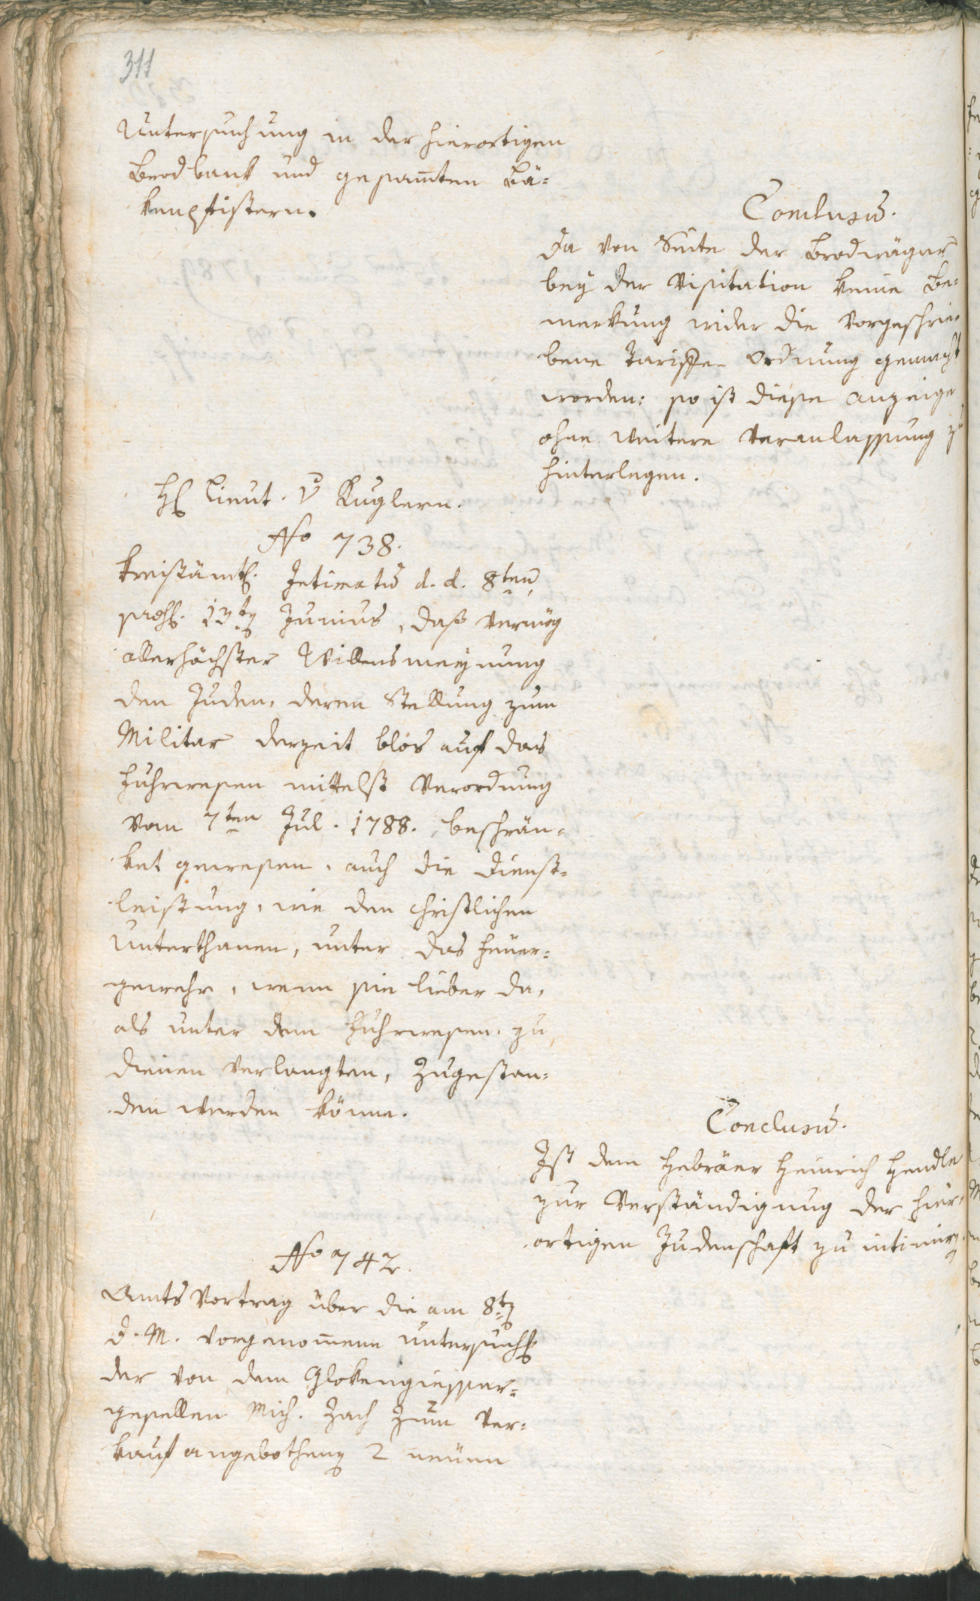 311
Untersuchung in der hierortigen
Brodbank und gesam̅ten Bä=
kenpfistern.
Conclusũ.
Da von Seite der Brodwäger
bey der Visitation keine Be=
merkung wider die vorgeschrie=
bene Ordnung gemacht
worden: so ist diese Anzeige
ohne weitere Veranlassung zu
hinterlegen.
H. Lieut. v Kuglern.
No 738.
Kreisämtl. Intimatũ d. d. 8ten
praes. 13ten Junius, daß vermög
allerhöchster Willensmeynung
den Juden, deren Stellung zum
Militar derzeit blos auf das
Fuhrwesen mittelst Verordnung
vom 7ten Jul. 1788. beschrän=
ket gewesen, auch die Dienst=
leistung, wie den christlichen
Unterthanen, unter das Feuer=
gewehr, wenn sie lieber da,
als unter dem Fuhrwesen zu
dienen verlangten, zugestan=
den werden könne.
Conclusũ.
Ist dem Hebräer Heinrich Hendle
zur Verständigung der hier=
ortigen Judenschaft zu intimiren.
No 742.
Amts Vortrag über die am 8ten
d. M. vorgenom̅ene Untersuchg
der von dem Glokengiesser=
gesellen Mich. Zach zum Ver=
kauf angebothenen 2 neuen